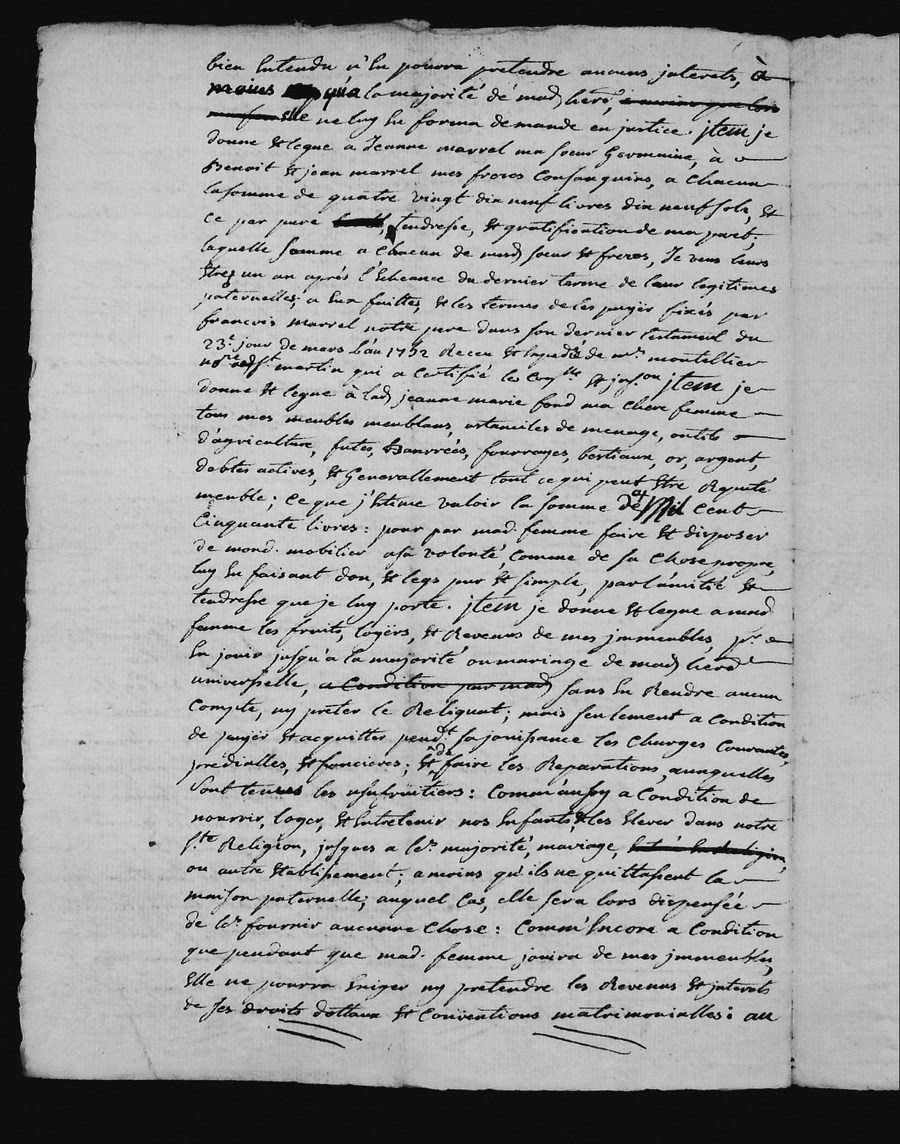 bien Entendu n'En pourra pretendre aucuns jnterets, à
moins qu'a la majorité de mad. herе, a moins que lors
Elle ne luy En forma demande en justice. jtem je
donne Et legue a Jeanne marrel ma soeur Germaine, à
Benoit Et jean marrel mes freres Consanguins, a Chacun
la somme de quatre vingt dix neuf livres dix neuf sols, Et
ce par pure tendresse, Et gratification de ma part;
laquelle somme a Chacun de mesd. soeur Et freres, Je veux leurs
Etre un an aprés l'Echeance du dernier terme de leur legitimes
paternelles, a Eux faittes, Et les termes de les payér fixés par
francois marrel notre pere dans son dernier testament du
23.e jour de mars L'an 1752 Receu Et Expedié de mr. montellier
nore. aud. st. martin qui a certifié les Conlle. Et jnson. jtem je
donne Et legue à lad. jeanne marie fond ma Chere femme
tous mes meubles meublans, ustanciles de menage, outils
d'agriculture, futes, Danrrées, fourrages, bestiaux, or, argent,
debtes actives, Et Generallement tout ce qui peut Etre Reputé
meuble; Ce que j'Estime valoir la somme de Mil Cent
Cinquante livres: pour par mad. femme faire Et disposer
de mond. mobilier a sa volonté, Comme de sa Chose propre,
luy En faisant don, Et legs pur Et simple, par l'amitié Et
tendresse que je luy porte. jtem je donne Et legue a mad.
femme les fruits, loyërs, Et Revenus de mes jmmeubles, pr.
En jouir jusqu'a la majorité ou mariage de mad. herе.
universelle, a Condition par mad. sans En Rendre aucun
Compte, ny préter le Reliquat; mais seulement a Condition
de payer Et acquitter pendt. sa jouissance les Charges Courantes,
prédialles, Et foncieres; Et de faire les Reparations, auxquelles
sont tenues les usufruitiers: Comm'aussy a Condition de
nourrir, loger, Et Entretenir nos Enfants, & les Elever dans notre
ste. Religion, jusques a ler. majorité, mariage,
ou autre Etablissement; a moins qu'ils ne quittassent la
maison paternelle; auquel Cas, elle sera lors dispensée
de ler. fournir aucunne Chose: Comm'Encore a Condition
que pendant que mad. femme jouira de mes jmmeubles,
Elle ne pourra Exiger ny pretendre les Revenus Et jnterets
de ses droits dottaux Et Conventions matrimonialles: au